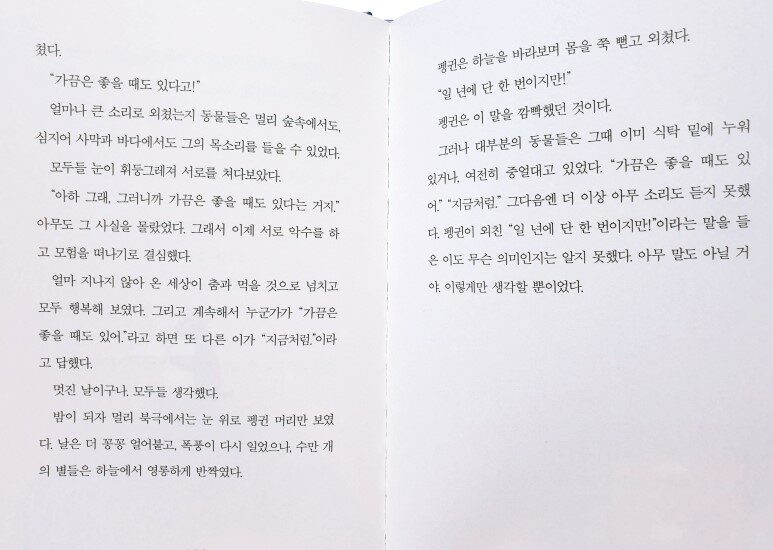 쳤다.
“가끔은 좋을 때도 있다고!”
얼마나 큰 소리로 외쳤는지 동물들은 멀리 숲속에서도,
심지어 사막과 바다에서도 그의 목소리를 들을 수 있었다.
모두들 눈이 휘둥그레져 서로를 쳐다보았다.
“아하 그래, 그러니까 가끔은 좋을 때도 있다는 거지.”
아무도 그 사실을 몰랐었다. 그래서 이제 서로 악수를 하
고 모험을 떠나기로 결심했다.
얼마 지나지 않아 온 세상이 춤과 먹을 것으로 넘치고
모두 행복해 보였다. 그리고 계속해서 누군가가 “가끔은
좋을 때도 있어.”라고 하면 또 다른 이가 “지금처럼.”이라
고 답했다.
멋진 날이구나. 모두들 생각했다.
밤이 되자 멀리 북극에서는 눈 위로 펭귄 머리만 보였
다. 날은 더 꽁꽁 얼어붙고, 폭풍이 다시 일었으나, 수만 개
의 별들은 하늘에서 영롱하게 반짝였다.
펭귄은 하늘을 바라보며 몸을 쭉 뻗고 외쳤다.
“일 년에 단 한 번이지만!”
펭귄은 이 말을 깜빡했던 것이다.
그러나 대부분의 동물들은 그때 이미 식탁 밑에 누워
있거나, 여전히 중얼대고 있었다. “가끔은 좋을 때도 있
어.” “지금처럼.” 그다음엔 더 이상 아무 소리도 듣지 못했
다. 펭귄이 외친 “일 년에 단 한 번이지만!”이라는 말을 들
은 이도 무슨 의미인지는 알지 못했다. 아무 말도 아닐 거
야. 이렇게만 생각할 뿐이었다.